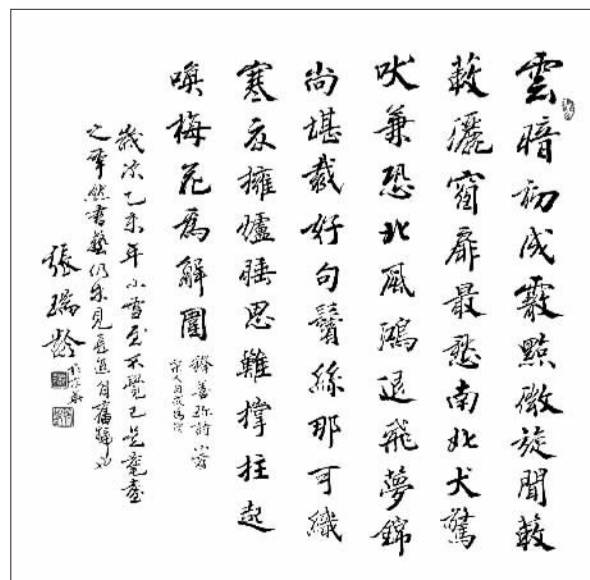 雲暗初成霰點微旋聞蔌
蔌灑窗扉最愁南北犬驚
吠兼恐北風鴻退飛夢錦
尚堪裁好句鬢絲那可織
寒衣擁爐睡思難撐拄起
喚梅花爲解圍
釋善珍詩小雪
宋人
歲次乙未年小雪至不覺已是耄耋
之年然書藝仍未見長進自
張瑞齡